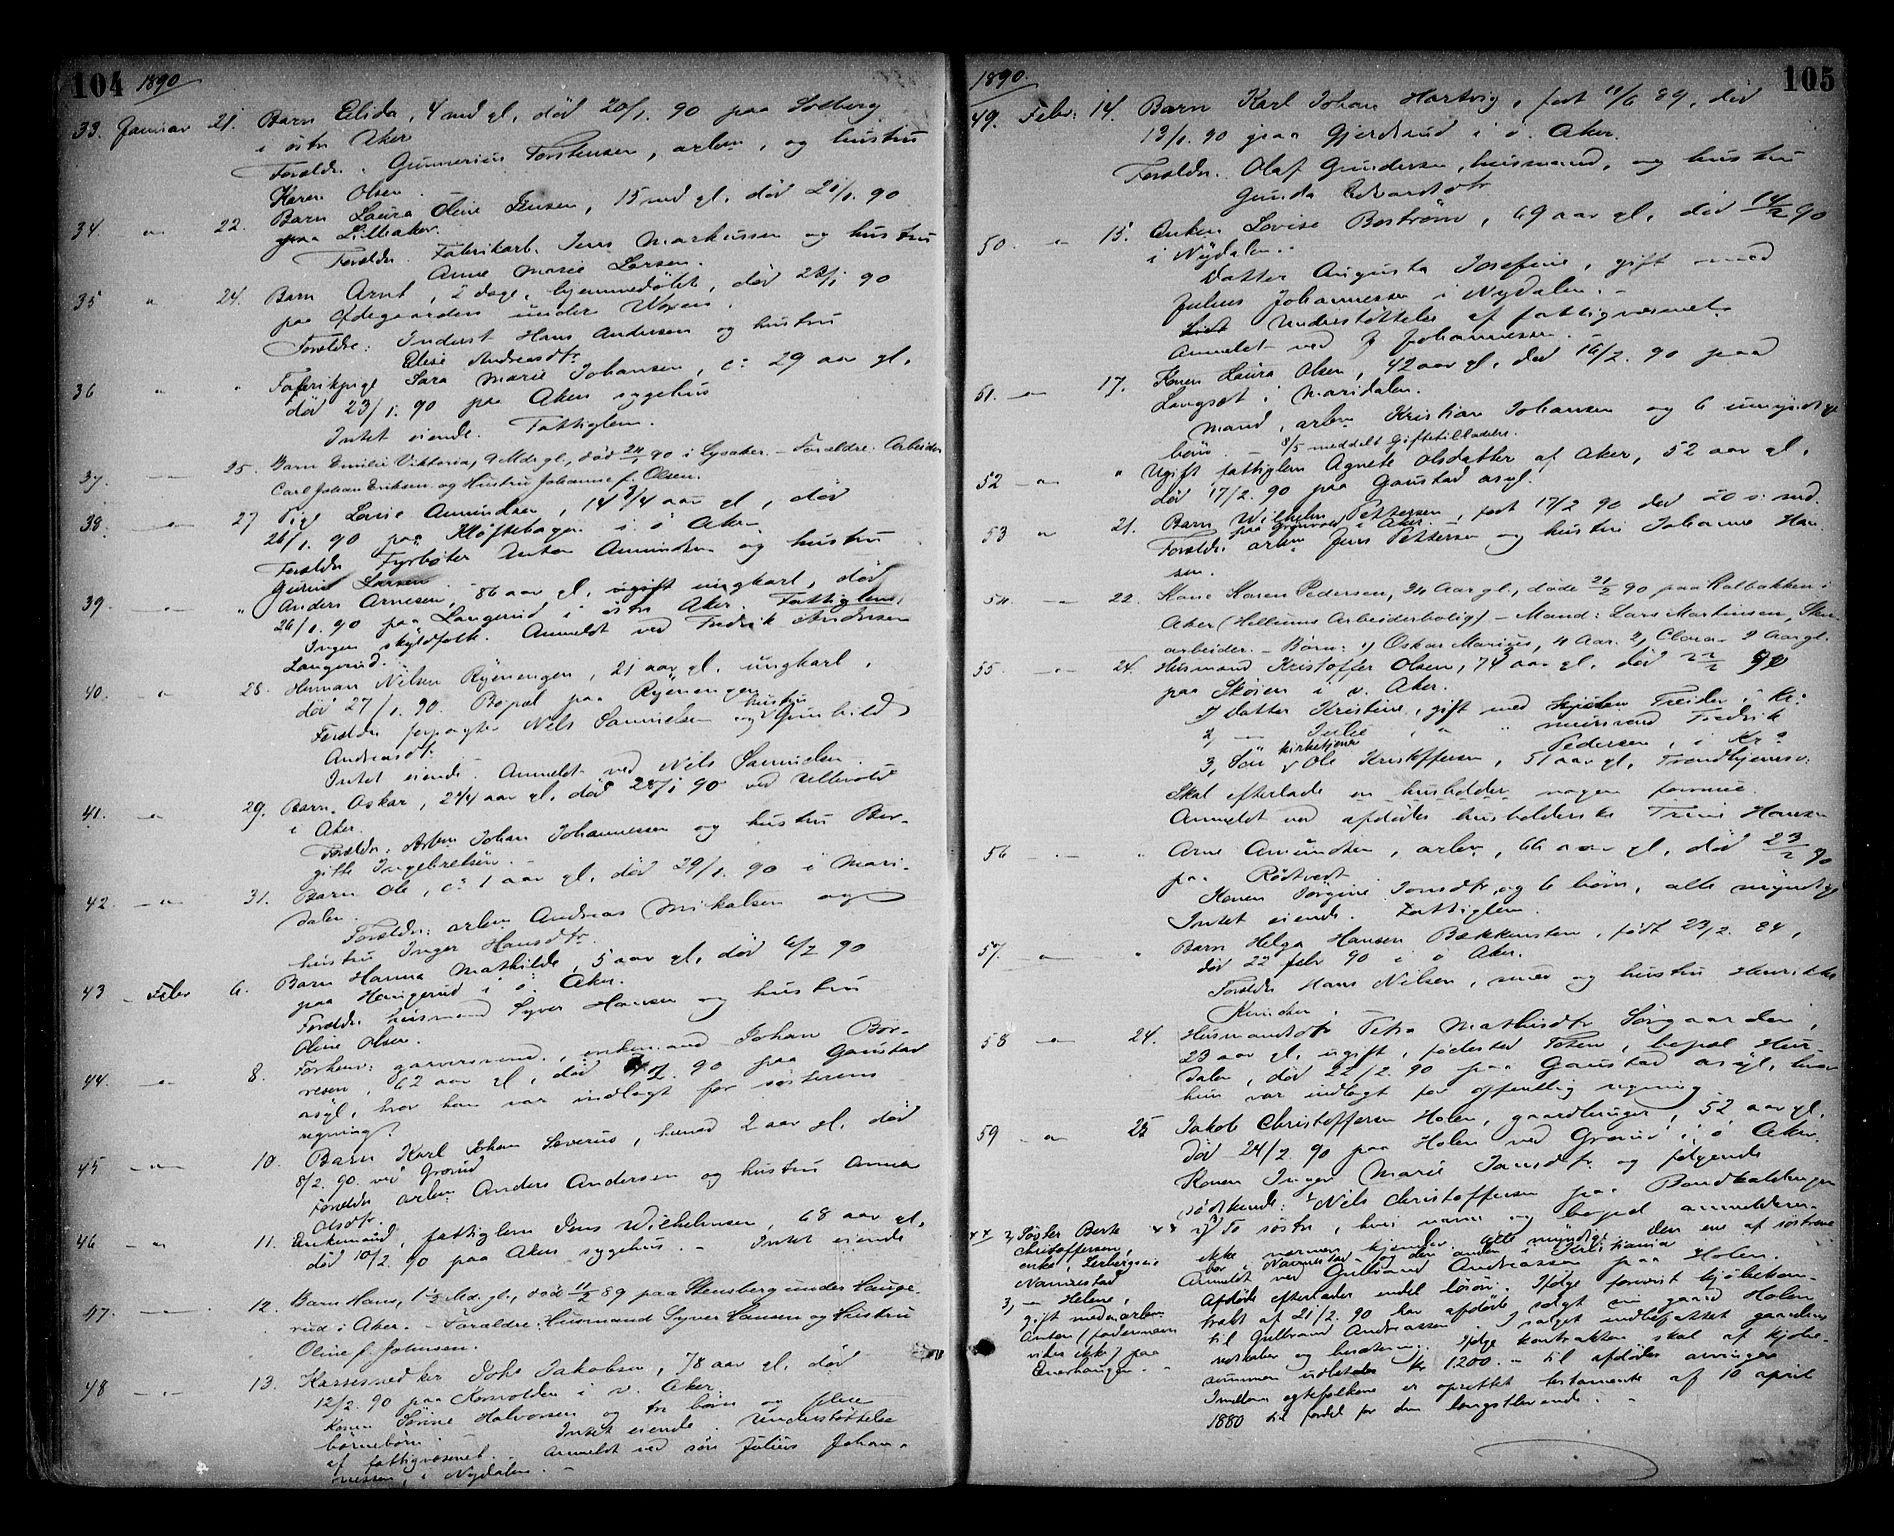 104 1890
33. Januar 21. Barn Elida, 4 md gl, død 20/1. 90 paa Solberg
i østr Aker
Forældr. Gunnerius Torstensen, arbm, og hustru
Karen Olsen.
34. " 22. Barn Laura Oline Jensen, 15 md gl, død 21/1. 90
paa Lilleaker.
Forældr. Fabrikarb. Jens Markussen og hustru
Anne Marie Larsen.
35 " 24. Barn Arnt, 2 dage, hjemmedøbt, død 23/1 90
paa Ødegaarden under Voxen.
Forældre: Inderst Hans Andersen og hustru
Elise Andreasdtr
36 " " Fabrikpige Sara Marie Johansen, c: 29 aar gl.
død 23/1. 90 paa Akers sygehus
Intet eiende. Fattiglem.
37. — 25. Barn Emilie Viktoria, 9 Mdr gl., død 24/1 90 i Lysaker. – Forældre: Arbeider
Carl Johan Eriksen og Hustru Johanne f. Olsen.
38. — 27 Pige Lovise Amundsen, 14 3/4 aar gl, død
26/1. 90 paa Kløftehagen i ø Aker
Forældr Fyrbøter Anton Amundsen og hustru
Gurine Larsen
39. — " Anders Arnesen, 86 aar gl, ugift ungkarl, død
26/1. 90 paa Langerud i østr Aker. Fattiglem.
Ingen skyldfolk. Anmeldt ved Fredrik Andersen
Langerud.
40. — 28. Herman Nilsen Ryenengen, 21 aar gl, ungkarl,
død 27/1. 90. Bopæl paa Ryenengen
Forældr forpagtr Nils Samuelsen og hustru Gunhild
Andreasdtr.
Intet eiende. Anmeldt ved Nils Samuelsen.
41. — 29. Barn Oskar, 2 1/4 aar gl, død 28/1 90 ved Ullevold
i Aker.
Forældr: Arbm Johan Johannessen og hustru Ber-
gitte Ingebretsen. –
42. — 31. Barn Ole, c: 1 aar gl, død 29/1. 90 i Mari-
dalen.
Forældr: arbm Andreas Mikalsen og
hustru Inger Hansdtr.
43 – Febr 6. Barn Hanna Mathilde, 5 aar gl, død 6/2 90
paa Haugerud i ø. Aker.
Forældr husmand Syver Hansen og hustru
Oline Olsen.
44. — 8. Forhenv: gaardsmand, enkemand Johan Bor-
resen, 62 aar gl, død /2. 90 paa Gaustad
asyl, hvor han var indlagt for søsterens
regning.
45 — 10. Barn Karl Johan Severus, henved 2 aar gl, død
8/2. 90. ved Grorud
Forældr arbm Anders Andersen og hustru Anna
Olsdtr.
46 — 11. Enkemand, fattiglem Jens Wilhelmsen, 68 aar gl.
død 10/2. 90 paa Akers sygehus. – Intet eiende
47. — 12. Barn Hans, 1 1/2 Md. gl., død 11/2 89 paa Stensberg under Hauge-
rud i Aker. – Forældre: Husmand Syver Hansen og Hustru
Oline f. Johnsen.
48 — 13. Johs Jakobsen, 78 aar gl, død
12/2. 90 paa Kornolden i v. Aker.
Konen Sørine Halvorsen og tre børn og flere
børnebørn. Intet eiende. Understøttelse
af fattigvæsenet. Anmeldt ved søn Julius Johan-
nessen, i Nydalen. –
105
1890.
49. Febr: 14. Barn Karl Johan Hartvig, født 11/6 89, død
13/1. 90 paa Gjerdrud i ø. Aker.
Forældr. Olaf Gundersen, husmand, og hustru
Gunda Edvardsdtr
50. — 15. Enken Lovise Boström, 69 aar gl, død 14/2 90
i Nydalen.
Datter Augusta Josefine, gift med
Julius Johannessen i Nydalen. –
Understøttelse af fattigvæsenet.
Anmeldt ved J Johannessen. –
51. — 17. Konen Laura Olsen, 42 aar gl, død 16/2. 90 paa
Langset i Maridalen.
Mand, arbm Kristian Johansen og 6 umyndige
børn. – 8/5 meddelt Giftetilladelse.
52 — " Ugift fattiglem Agnete Olsdatter af Aker, 52 aar gl.
død 17/2. 90 paa Gaustad asyl.
53 " 21. Barn Wilhelm Pettersen, født 17/2 90 død 20 s: md.
paa Grünvold i Aker.
Forældr: arbm Jens Pettersen og hustru Johanne Han-
sen.
54 — 22. Kone Karen Pedersen, 34 Aar gl., døde 21/2 90 paa Kalbakken i
Aker (Hellums Arbeiderbolig) – Mand: Lars Martinsen,
arbeider. – Børn: 1) Oskar Marius, 4 Aar. 2, Clara – 2 Aar gl.
55 — 24. Husmand Kristoffer Olsen, 74 aar gl, død 22/2 90
paa Skøien i v. Aker.
1) datter Kristine, gift med Treider i Kr:
2, — Julie, " " murersvend Fredrik
Pedersen, i Kra
3, Søn kirketjener Ole Kristoffersen, 51 aar gl, Trondhjemsv:
Skal efterlade en husholder nogen formue.
Anmeldt ved afdødes husholderske Trine Hansen
56 — " Arne Amundsen, arbm, 66 aar gl, død 23/2 90
paa Rødtvedt.
Konen Jørgine Jonsdtr og 6 børn, alle myndige
Intet eiende. Fattiglem.
57. — " Barn Helga Hansen Bækkensten, født 23/2. 84,
død 22 febr 90 i ø Aker.
Forældr Hans Nilsen, smed og hustru Henrikke
Knudsen.
58 — 24. Husmandsdtr Petra Mathisdtr Sørgaarden,
23 aar gl, ugift, fødested Toten, bopæl Hur-
dalen, død 22/2. 90 paa Gaustad asyl, hvor
hun var indlagt for offentlig regning
59 — 25 Jakob Christoffersen Holen, gaardbruger, 52 aar gl.
død 24/2. 90 paa Holen ved Grorud i ø Aker
Konen Inger Marie Jansdtr og følgende
sødskende: 1 Nils Christoffersen paa
To søstre, hvis navn og bopæl anmelderen
ikke nærmere kjender. Alle myndige. Den ene af søstrene
bor i Nannestad og den anden i Kristiania
Anmeldt ved Gulbrand Andreassen paa Holen.
Afdøde efterlader endel løsøre. Ifølge forevist kjøbekon-
trakt af 21/2. 90 har afdøde solgt sin gaard Holen
til Gulbrand Andreassen. I salget indbefattet gaardens
redskaber og besætning. Ifølge kontrakten skal af kjøbe-
summen udbetales kr 1200. – til afdødes arvinger
Imellem egtefolkene er oprettet testamente af 10 april
1880 til fordel for den længstlevende. –
2, Søster Berte
Christoffersen,
enke,
Nannestad
3, — Helene,
gift med en arbm
Anton (fadernavn
vides ikke) paa
Enerhaugen. –